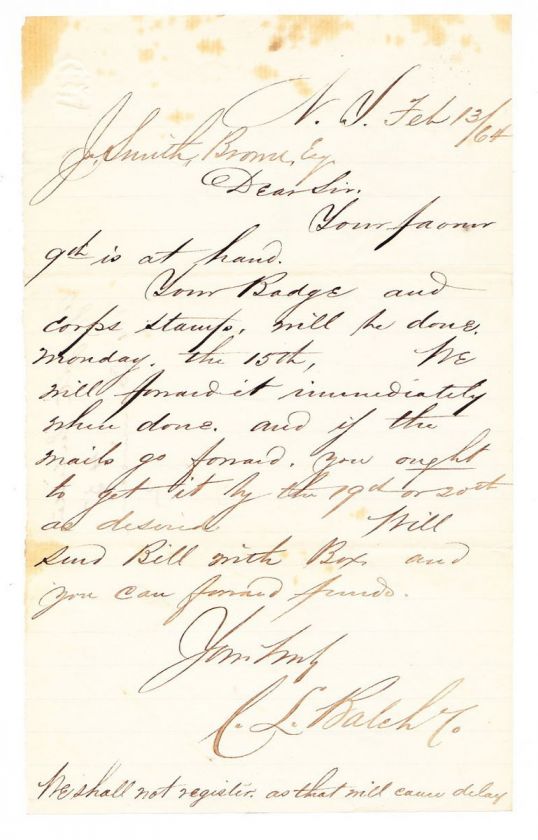 N. Y. Feb 13/64
J. Smith, Brown, Esq.
Dear Sir.
Your favour
9th is at hand.
Your Badge and
corps stamp, will be done.
Monday, the 15th, WE
will forward it immediately
when done. and if the
mails go forward, you ought
to get it by the 19th or 20th
as desired Will
send Bill with Box and
you can forward funds.
Yours truly
C. L. Balch & Co.
WE shall not register. as that will cause delay